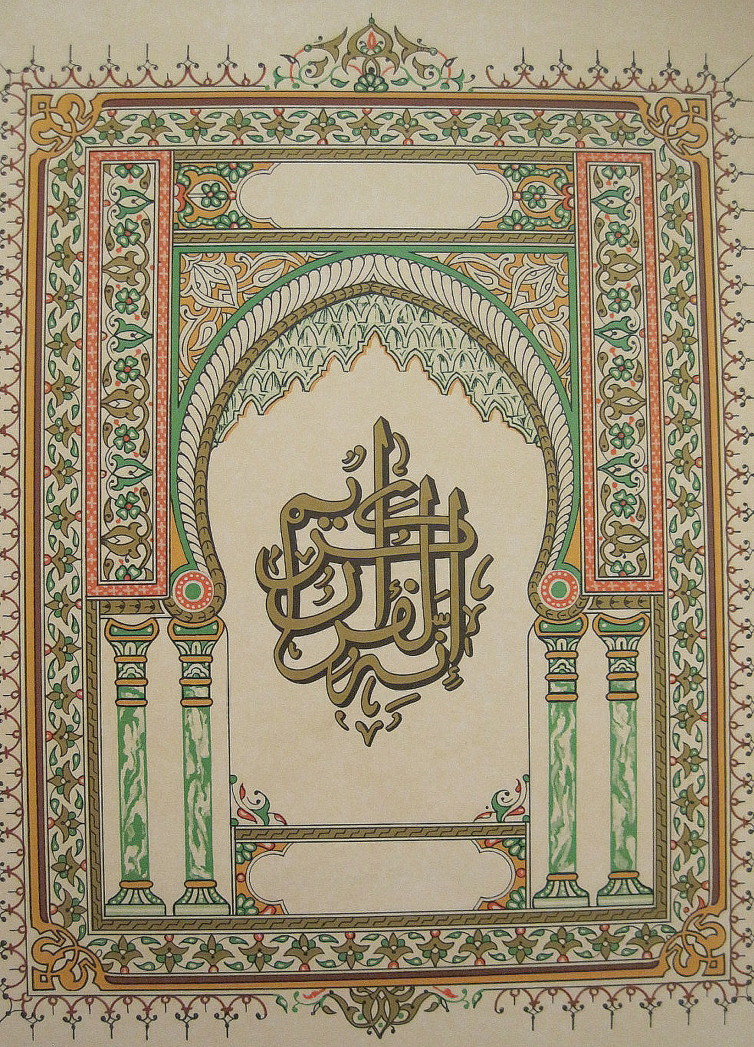 إِنَّهُ لَقُرْءَانٌ كَرِيمٌ